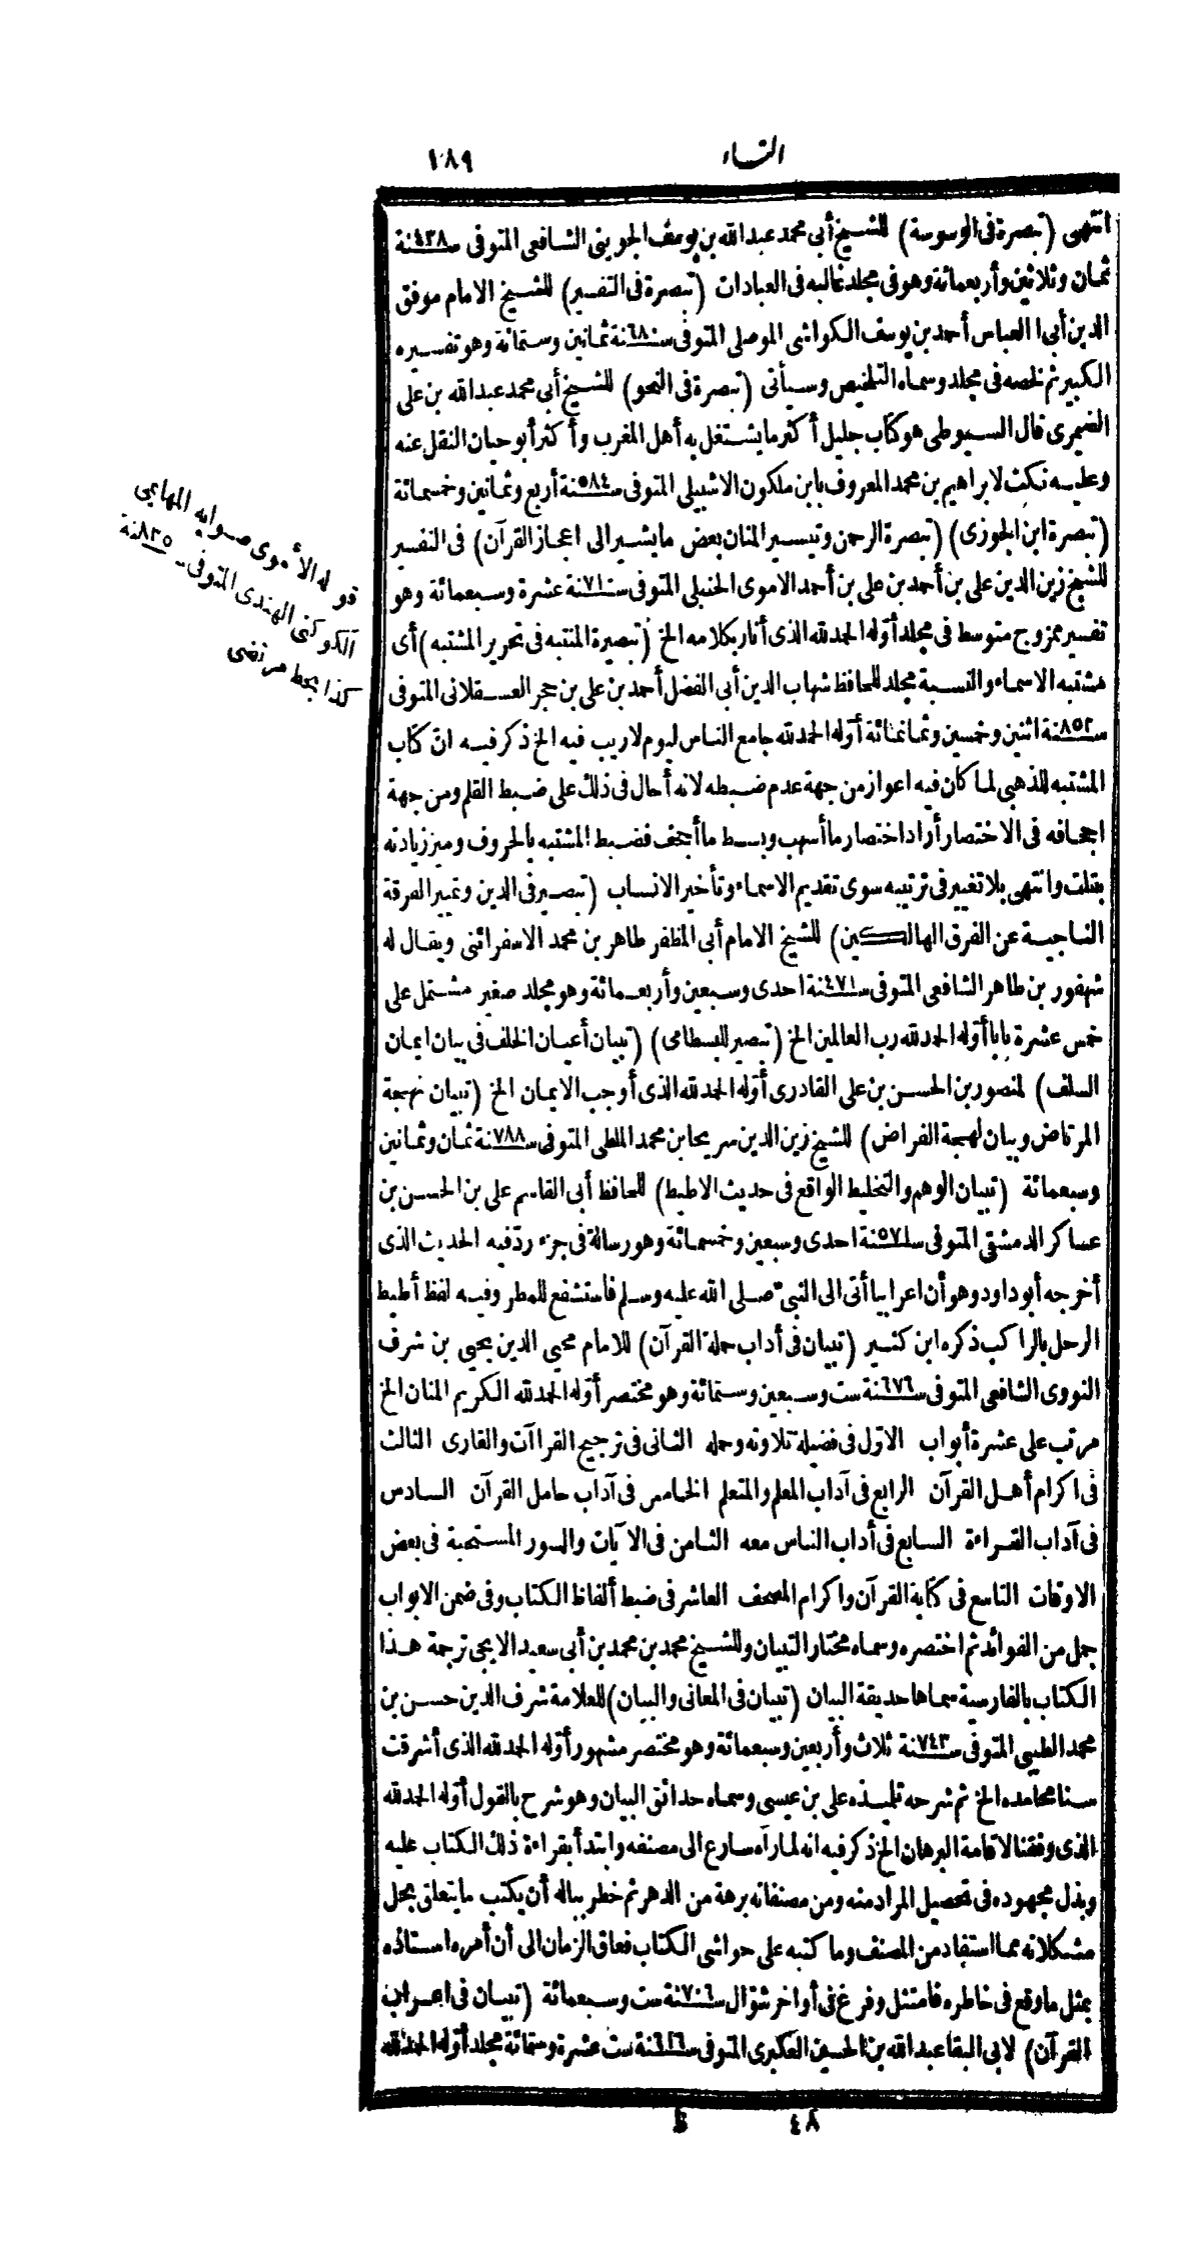 التاء ١٨٩
انتهى (تبصرة فى الوسوسة) للشيخ أبى محمد عبد الله بن يوسف الجوينى الشافعى المتوفى سنة ٤٣٨
ثمان وثلاثين وأربعمائة وهو فى مجلد غالبه فى العبادات (تبصرة فى التفسير) للشيخ الامام موفق
الدين أبى العباس أحمد بن يوسف الكواشى الموصلى المتوفى سنة ٦٨٠ ثمانين وستمائة وهو تفسيره
الكبير ثم لخصه فى مجلد وسماه التلخيص وسيأتى (تبصرة فى النحو) للشيخ أبى محمد عبد الله بن على
الضيمرى قال السيوطى هو كتاب جليل أكثر ما يشتغل به أهل المغرب وأكثر أبو حيان النقل عنه
وعليه نكت لابراهيم بن محمد المعروف بابن ملكون الاشبيلى المتوفى سنة ٥٨٤ أربع وثمانين وخمسمائة
(تبصرة ابن الجوزى) (تبصرة الرحمن وتيسير المنان بعض ما يشير الى اعجاز القرآن) فى التفسير
للشيخ زين الدين على بن أحمد بن على بن أحمد الاموى الحنبلى المتوفى سنة ٧١٠ عشرة وسبعمائة وهو
تفسير ممزوج متوسط فى مجلد أوله الحمد لله الذى أنار بكلامه الخ (تبصيرة المنتبه فى تحرير المشتبه) أى
مشتبه الاسماء والنسبة مجلد للحافظ شهاب الدين أبى الفضل أحمد بن على بن حجر العسقلانى المتوفى
سنة ٨٥٢ اثنين وخمسين وثمانمائة أوله الحمد لله جامع الناس ليوم لاريب فيه الخ ذكر فيه انّ كتاب
المشتبه للذهبى لما كان فيه اعواز من جهة عدم ضبطه لانه أحال فى ذلك على ضبط القلم ومن جهة
اجحافه فى الاختصار أراد اختصار ما أسهب وبسط ما أجحف فضبط المشتبه بالحروف وميز زيادته
بقلت وانتهى بلا تغيير فى ترتيبه سوى تقديم الاسماء وتأخير الانساب (تبصير فى الدين وتمييز الفرقة
الناجية عن الفرق الهالكين) للشيخ الامام أبى المظفر طاهر بن محمد الاسفرائنى ويقال له
شهفور بن طاهر الشافعى المتوفى سنة ٤٧١ احدى وسبعين وأربعمائة وهو مجلد صغير مشتمل على
خمس عشرة بابا أوله الحمد لله رب العالمين الخ (تبصير للبسطامى) (تبيان أعيان الخلف فى بيان ايمان
السلف) لمنصور بن الحسن بن على القادرى أوله الحمد لله الذى أوجب الايمان الخ (تبيان نهجة
المرتاض وبيان لهجة الفراض) للشيخ زين الدين سريحا بن محمد الملطى المتوفى سنة ٧٨٨ ثمان وثمانين
وسبعمائة (تبيان الوهم والتخليط الواقع فى حديث الاطيط) للحافظ أبى القاسم على بن الحسن بن
عساكر الدمشقى المتوفى سنة ٥٧١ احدى وسبعين وخمسمائة وهو رسالة فى جزء ردّ فيه الحديث الذى
أخرجه أبو داود وهو أن اعرابيا أتى الى النبى صلى الله عليه وسلم فاستشفع للمطر وفيه لفظ أطيط
الرحل بالراكب ذكره ابن كثير (تبيان فى أداب حملة القرآن) للامام محيى الدين يحيى بن شرف
النووى الشافعى المتوفى سنة ٦٧٦ ست وسبعين وستمائة وهو مختصر أوله الحمد لله الكريم المنان الخ
مرتب على عشرة أبواب الاوّل فى فضيلة تلاوته وحمله الثانى فى ترجيح القراآت والقارى الثالث
فى اكرام أهل القرآن الرابع فى آداب المعلم والمتعلم الخامس فى آداب حامل القرآن السادس
فى آداب القراءة السابع فى أداب الناس معه الثامن فى الآيات والسور المستحبة فى بعض
الاوقات التاسع فى كتابة القرآن واكرام المصحف العاشر فى ضبط ألفاظ الكتاب وفى ضمن الابواب
جمل من الفوائد ثم اختصره وسماه مختار التبيان وللشيخ محمد بن محمد بن أبى سعيد الايجى ترجمة هذا
الكتاب بالفارسية سماها حديقة البيان (تبيان فى المعانى والبيان) للعلامة شرف الدين حسن بن
محمد الطيبى المتوفى سنة ٧٤٣ ثلاث وأربعين وسبعمائة وهو مختصر مشهور أوله الحمد لله الذى أشرقت
سنا محامده الخ ثم شرحه تلميذه على بن عيسى وسماه حدائق البيان وهو شرح بالقول أوله الحمد لله
الذى وفقنا لاقامة البرهان الخ ذكر فيه انه لما رآه سارع الى مصنفه وابتدأ بقراءة ذلك الكتاب عليه
وبذل مجهوده فى تحصيل المراد منه ومن مصنفاته برهة من الدهر ثم خطر بباله أن يكتب ما يتعلق بحل
مشكلاته مما استفاد من المصنف وما كتبه على حواشى الكتاب فعاق الزمان الى أن أمره استاذه
بمثل ما وقع فى خاطره فامتثل وفرغ فى أواخر شوّال سنة ٧٠٦ ست وسبعمائة (تبيان فى اعراب
القرآن) لابى البقا عبد الله بن الحسين العكبرى المتوفى سنة ٦١٦ ست عشرة وستمائة مجلد أوله الحمد لله
٤٨
قوله الأموى صوابه المهايمى
الكوكنى الهندى المتوفى سنة ٨٣٥
كذا بخط مرتضى